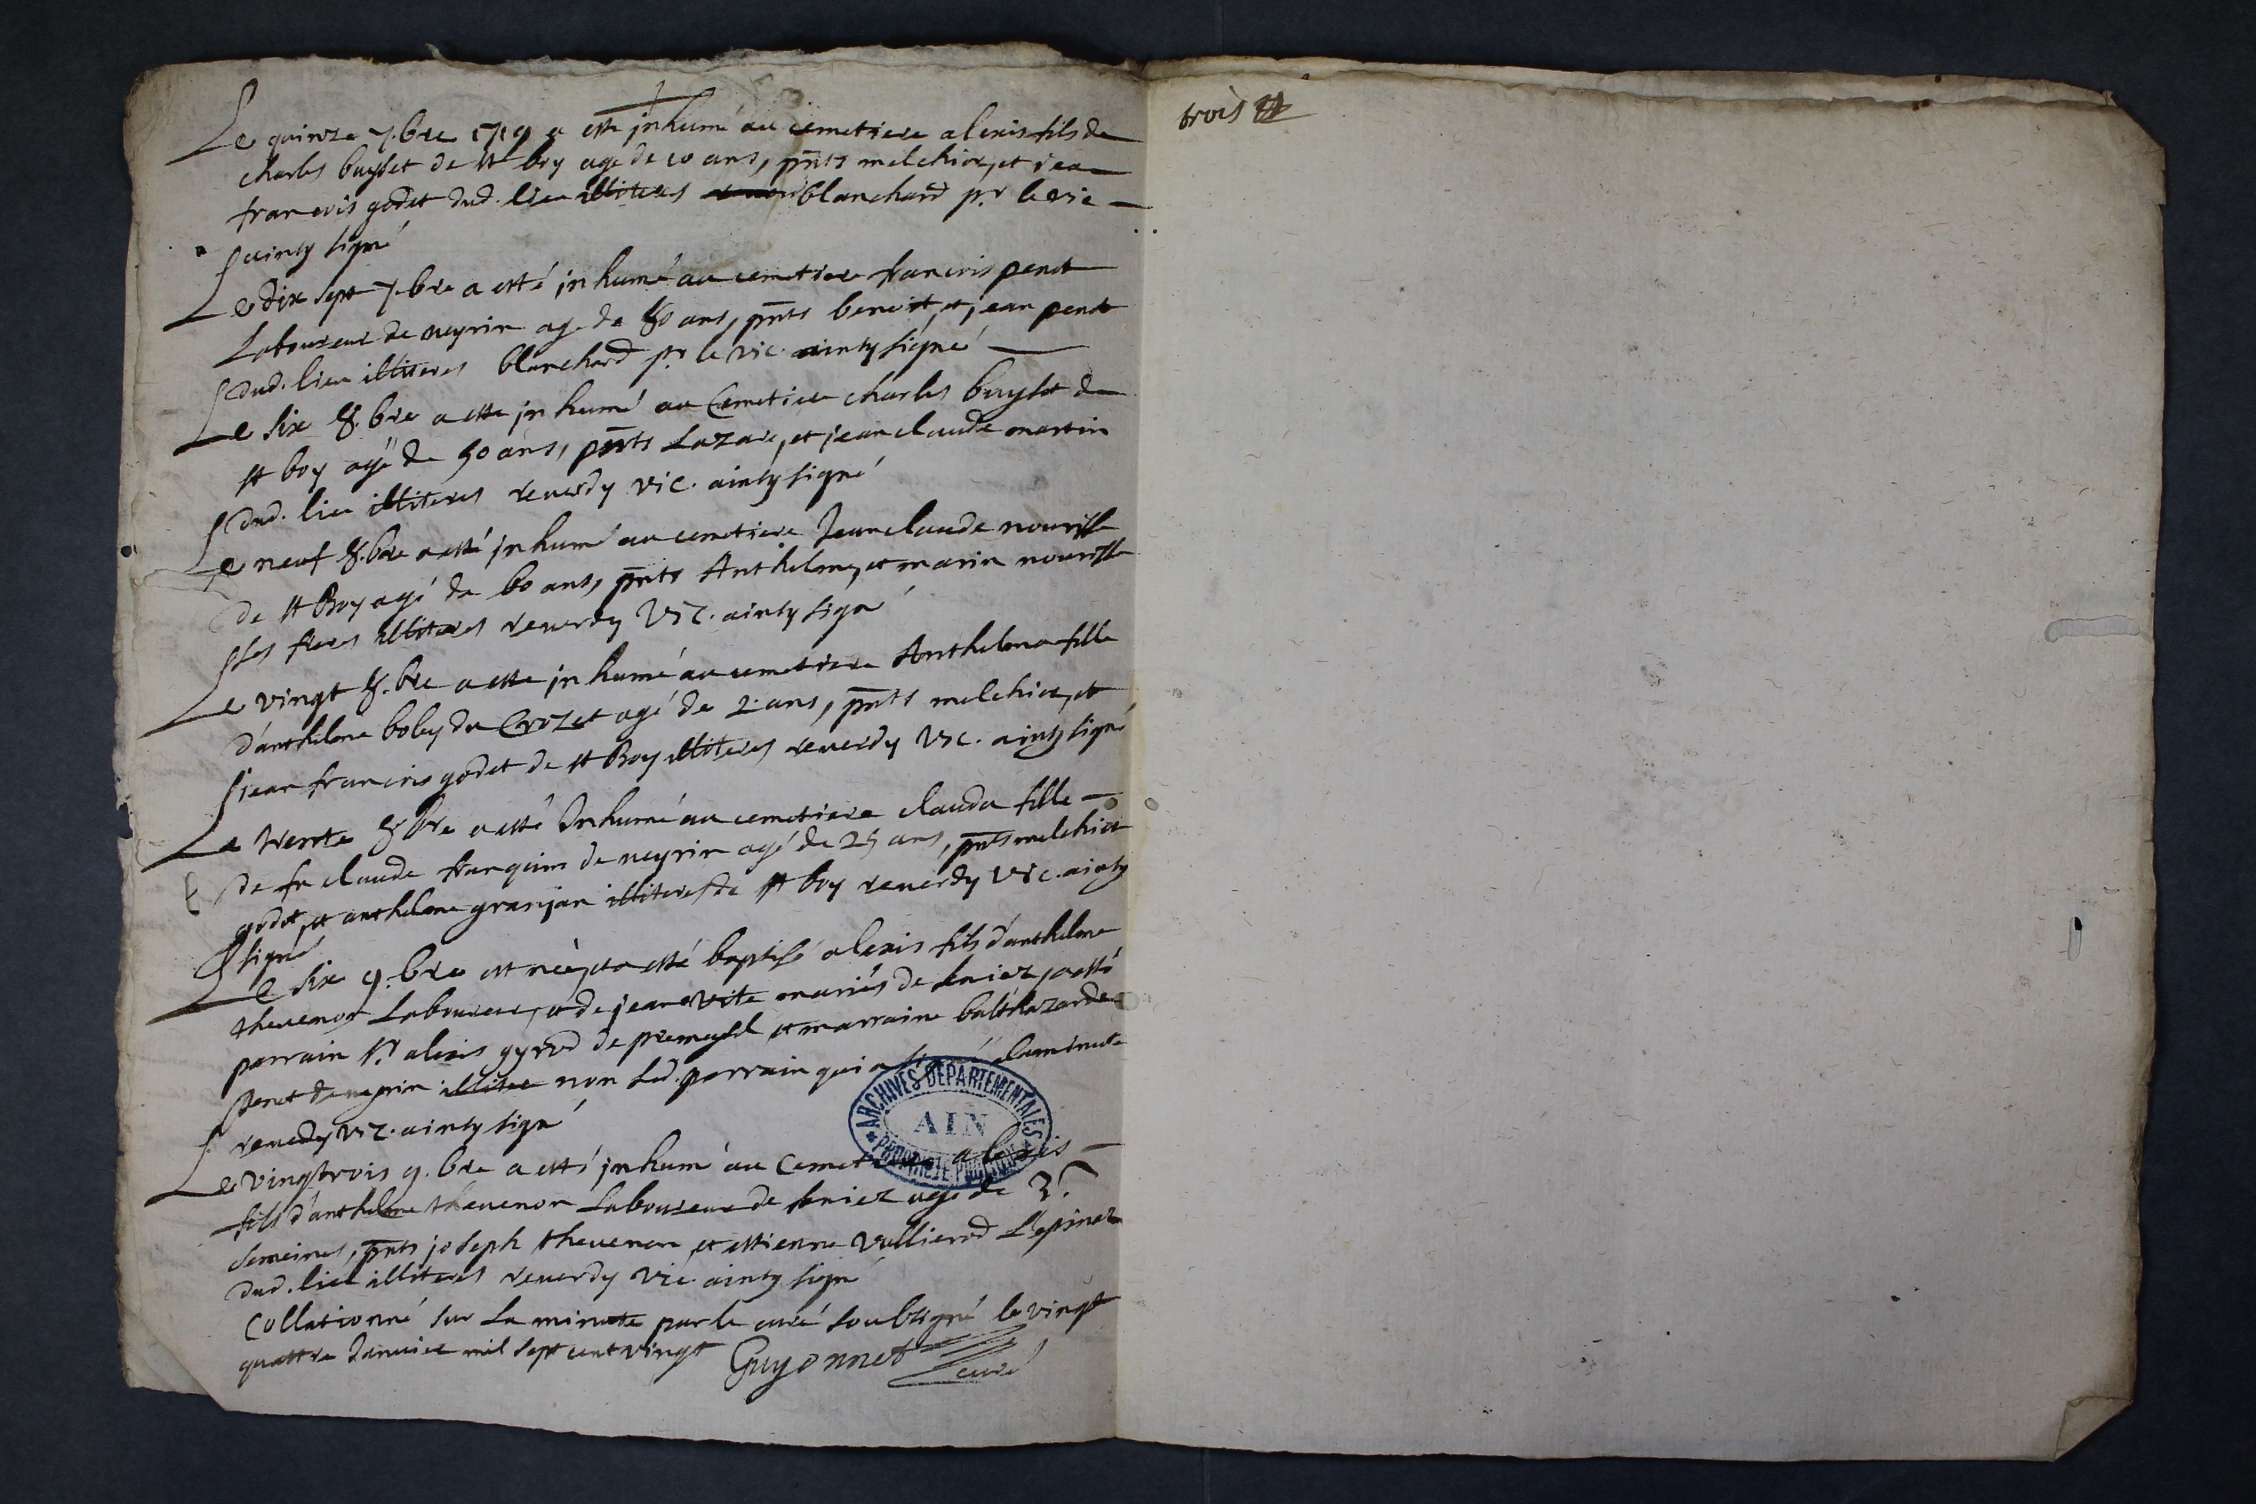 Le quinze 7.bre 1719 a esté inhumé au cemetiere alexis fils de
charles buyset de st boy age de 10 ans, pnts melchior, et jean
francois godet dud. lieu illiteres blanchard pr. le vic
ainsy signé
Le dix sept 7.bre a esté inhumé au cemetiere francois penet
Laboureur de neyrin age de 80 ans, pnts benoit, et jean penet
dud. lieu illiteres blanchard pr. le vic. ainsy signé
Le six 8.bre a esté inhumé au Cemetiere charles buyset de
st boy agé de 50 ans, pnts Lazare, et jean claude martin
dud. lieu illiteres reverdy vic. ainsy signé
Le neuf 8.bre a esté inhumé au cemetiere Jean claude nourisse
de st Boy agé de 60 ans, pnts Anthelme, et marin nourisse
ses freres illiteres reverdy Vic. ainsy signé
Le vingt 8.bre a esté inhumé au cemetiere Anthelma fille
d'anthelme boley du Crozet agé de 2. ans, pnts melchior, et
jean francois godet de st Boy illiteres reverdy Vic. ainsy signé
Le trente 8.bre a esté Inhumé au cemetiere clauda fille
de fu claude franquin de neyrin agé de 25 ans, pnts melchior
godet, et anthelme granjan illiteres de st boy reverdy Vic. ainsy
signé
Le six 9.bre est né, et a esté baptisé alexis fils d'anthelme
thevenon Laboureur, et de jeane vite mariés de seniez, a esté
parrain Sr. alexis gyrod de premeysel et marraine balthazarde
penet de neyrin illitere non led. parrain qui a signé a la minute
reverdy vic. ainsy signé
Le vingtrois 9.bre a esté inhumé au Cemetiere alexis
fils d'anthelme thevenon Laboureur de seniez agé de 3.
semeines, pnts joseph thevenon, et estienne Vullierod L'epinaz
dud. lieu illiteres reverdy vic. ainsy signé
Collationné sur La minute par le curé soubsigné le vingt
quattre Janvier mil sept cent vingt Guyonnet
curé
ARCHIVES DÉPARTEMENTALES
AIN
PROPRIÉTÉ PUBLIQUE
trois